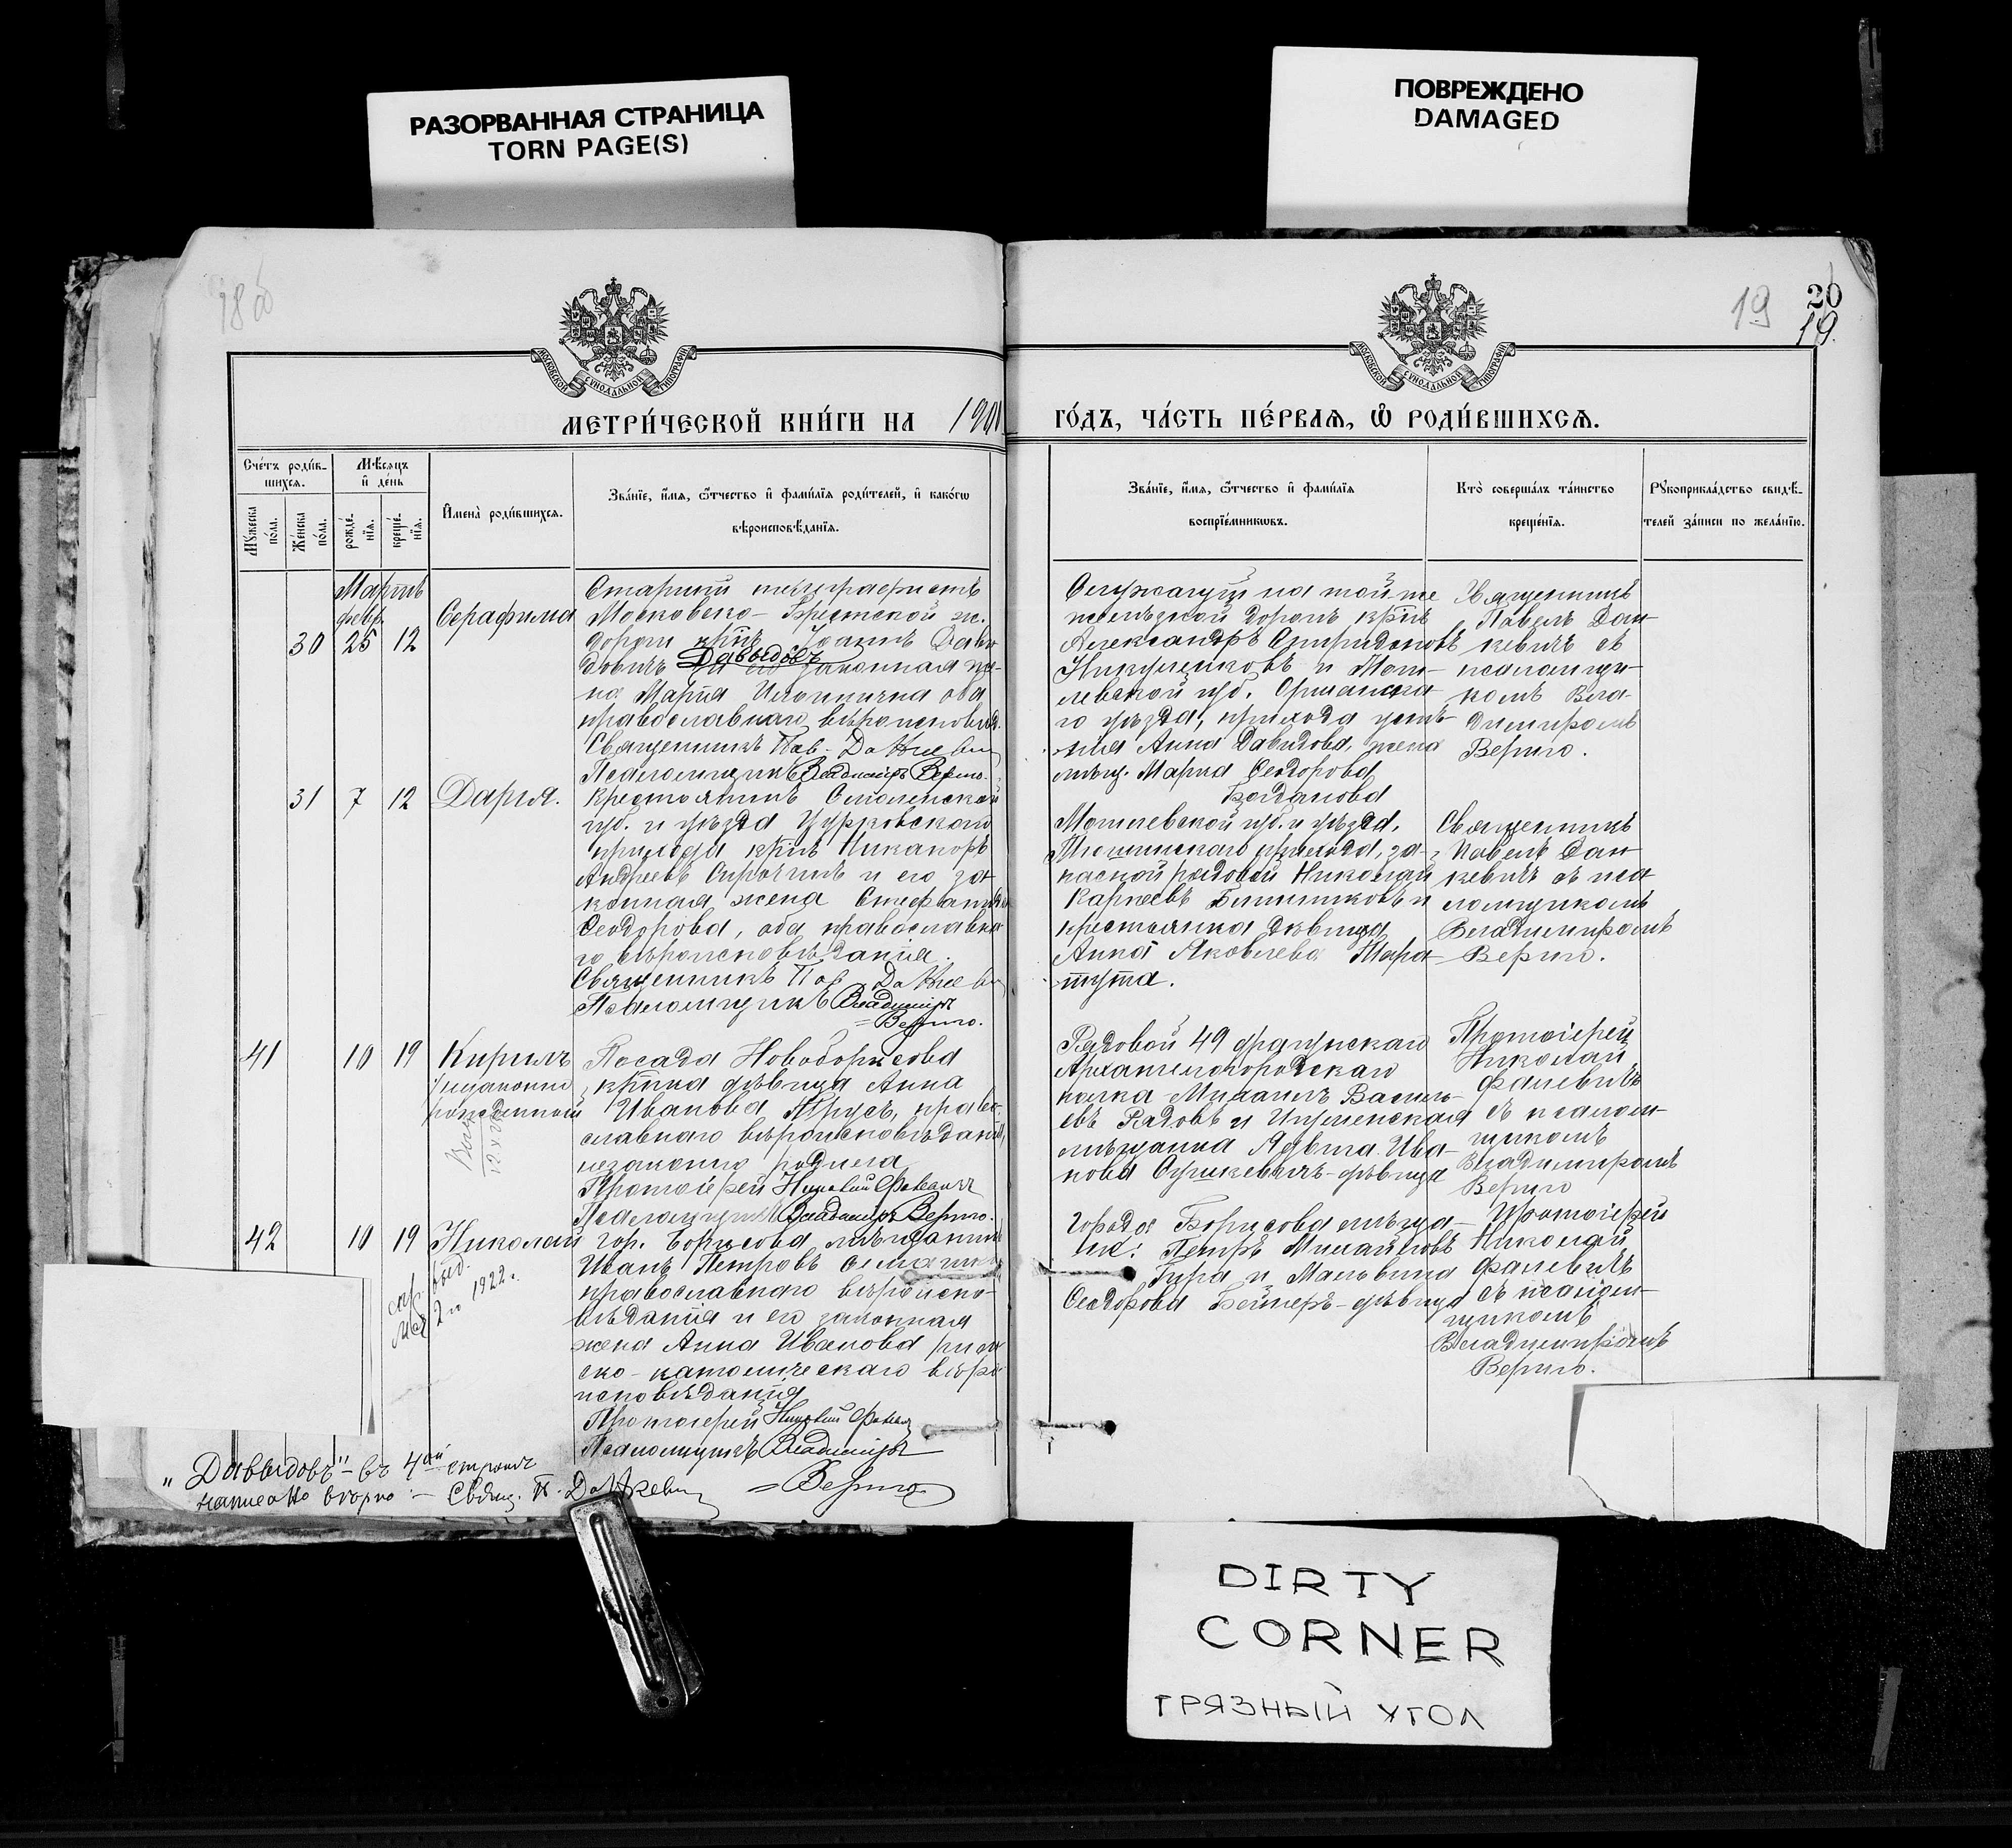 РАЗОРВАННАЯ СТРАНИЦА
TORN PAGE(S)
ПОВРЕЖДЕНО
DAMAGED
18об
19
20
19.
МОСКОВСКОЙ СУНОДАЛЬНОЙ ТИПОГРАФІИ
МОСКОВСКОЙ СУНОДАЛЬНОЙ ТИПОГРАФІИ
МЕТРИ́ЧЕСКОЙ КНИ́ГИ НА 190
ГО́ДЪ, ЧА́СТЬ ПЕ́РВАѦ, Ѡ҆ РОДИ́ВШИХСѦ.
Сче́тъ роди́в-
шихсѧ.
Мꙋ́жеска
по́ла.
Же́нска
по́ла.
Мѣ́сѧцъ
и҆ де́нь
рожде́-
нїѧ.
креще́-
нїѧ.
И҆мена̀ роди́вшихсѧ.
Зва́нїе, и҆́мѧ, ѻ҆́тчество и҆ фамѝлїѧ роди́телей, и҆ како́гѡ
вѣроисповѣ́данїѧ.
Зва́нїе, и҆́мѧ, ѻ҆́тчество и҆ фамѝлїѧ
воспрїе́мникѡвъ.
Кто̀ соверша́лъ та́инство
креще́нїѧ.
Рꙋкоприкла́дство свидѣ́-
телей за́писи по жела́нїю.
Мартъ
февр.
30 25 12
Серафима
Старшій телеграфистъ
Московско-Брестской ж.
дороги крнъ Іоаннъ Давы
довичъ Давыдовъ законная же-
на Марія Ильинична оба
православнаго вѣроисповѣд.
Священникъ Пав. Данкевич
Псаломщикъ Владиміръ Верго.
Служащій на той же
желѣзной дорогѣ крнъ
Александръ Спиридоновъ
и Моги-
левской губ. Оршанска
го уѣзда,
Анна Давидова, жена
мѣщ. Марія Ѳеодорова
Богданова
Священникъ
Павелъ Дан-
кевичъ съ
псаломщи-
комъ Вла-
диміромъ
Верго.
31 7 12 Дарія.
крестьянинъ Смоленской
губ. и уѣзда
прихода крнъ Никаноръ
Андреевъ и его за-
конная жена Стефанида
Ѳеодорова, оба православна
го вѣроисповѣданія.
Священникъ Пав Данкевич
Псаломщикъ Владиміръ
=Верго.
Могилевской губ. и уѣзда,
прихода, за-
пасной рядовой Николай
Карпеевъ и
крестьянка дѣвица
Анна Яковлева Мара-
Священникъ
Павелъ Дан
кевичъ съ пса
ломщикомъ
Владиміромъ
Верго.
41 10 19 Кирилъ
незаконно
рожденный
Посада Новоборисова
крнка дѣвица Анна
Иванова право-
славнаго вѣроисповѣданія,
незаконно родила
Протоіерей Николай Фалевичъ
Псаломщикъ Владиміръ Верго.
Рядовой 49 драгунскаго
Архангелогородскаго
полка Михаилъ Василь-
евъ Рядовъ и Игуменская
мѣщанка Ядвига Ива-
нова Сушкевичъ-дѣвица
Протоіерей
Николай
Фалевичъ
съ псалом-
щикомъ
Владиміромъ
Верго
42 10 19 Николай
1922 г.
гор. Борисова мѣщанинъ
Иванъ Петровъ
православнаго вѣроиспо-
вѣданія и его законная
жена Анна Иванова рим
ско-католическаго вѣро
исповѣданія
Протоіерей Николай Фалевичъ
Псаломщикъ Владиміръ
=Верго
Города Борисова мѣща-
не: Петръ Михайловъ
Гира и Мальвина
Ѳеодорова дѣвица
Протоіерей
Николай
Фалевичъ
съ псалом-
щикомъ
Владиміромъ
Верго.
„Давыдовъ"-въ 4ой строкѣ
написано вѣрно:- Свящ. П. Данкевич
DIRTY
CORNER
ГРЯЗНЫЙ УГОЛ